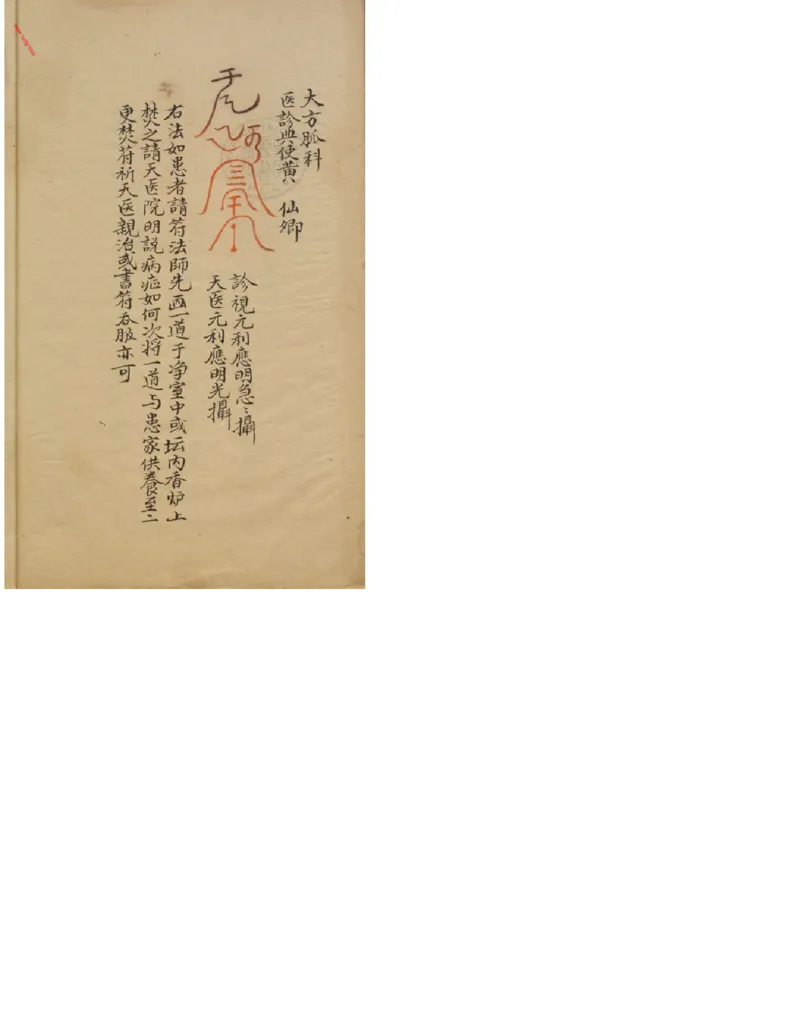 大方脈科
医診典使黄 仙卿
診視元利應明急〻攝
天医元利應明光攝
右法如患者請符法師先画一道于净室中或坛内香炉上
焚之請天医院明説病症如何次将一道与患家供養至二
更焚符祈天医親治或書符吞服亦可